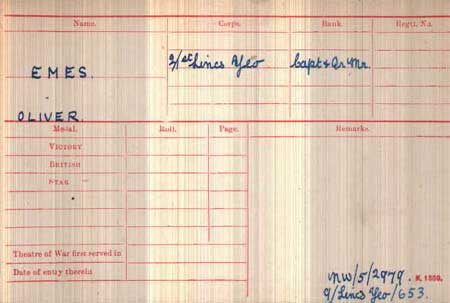 Name. Corps. Rank. Regtl. No.
EMES. 2/1st Lincs Yeo Capt & Qr. Mr.
OLIVER.
Medal. Roll. Page. Remarks.
VICTORY
BRITISH
STAR
Theatre of War first served in
Date of entry therein
NW/5/2979. K. 1380.
9/Lincs Yeo/653.